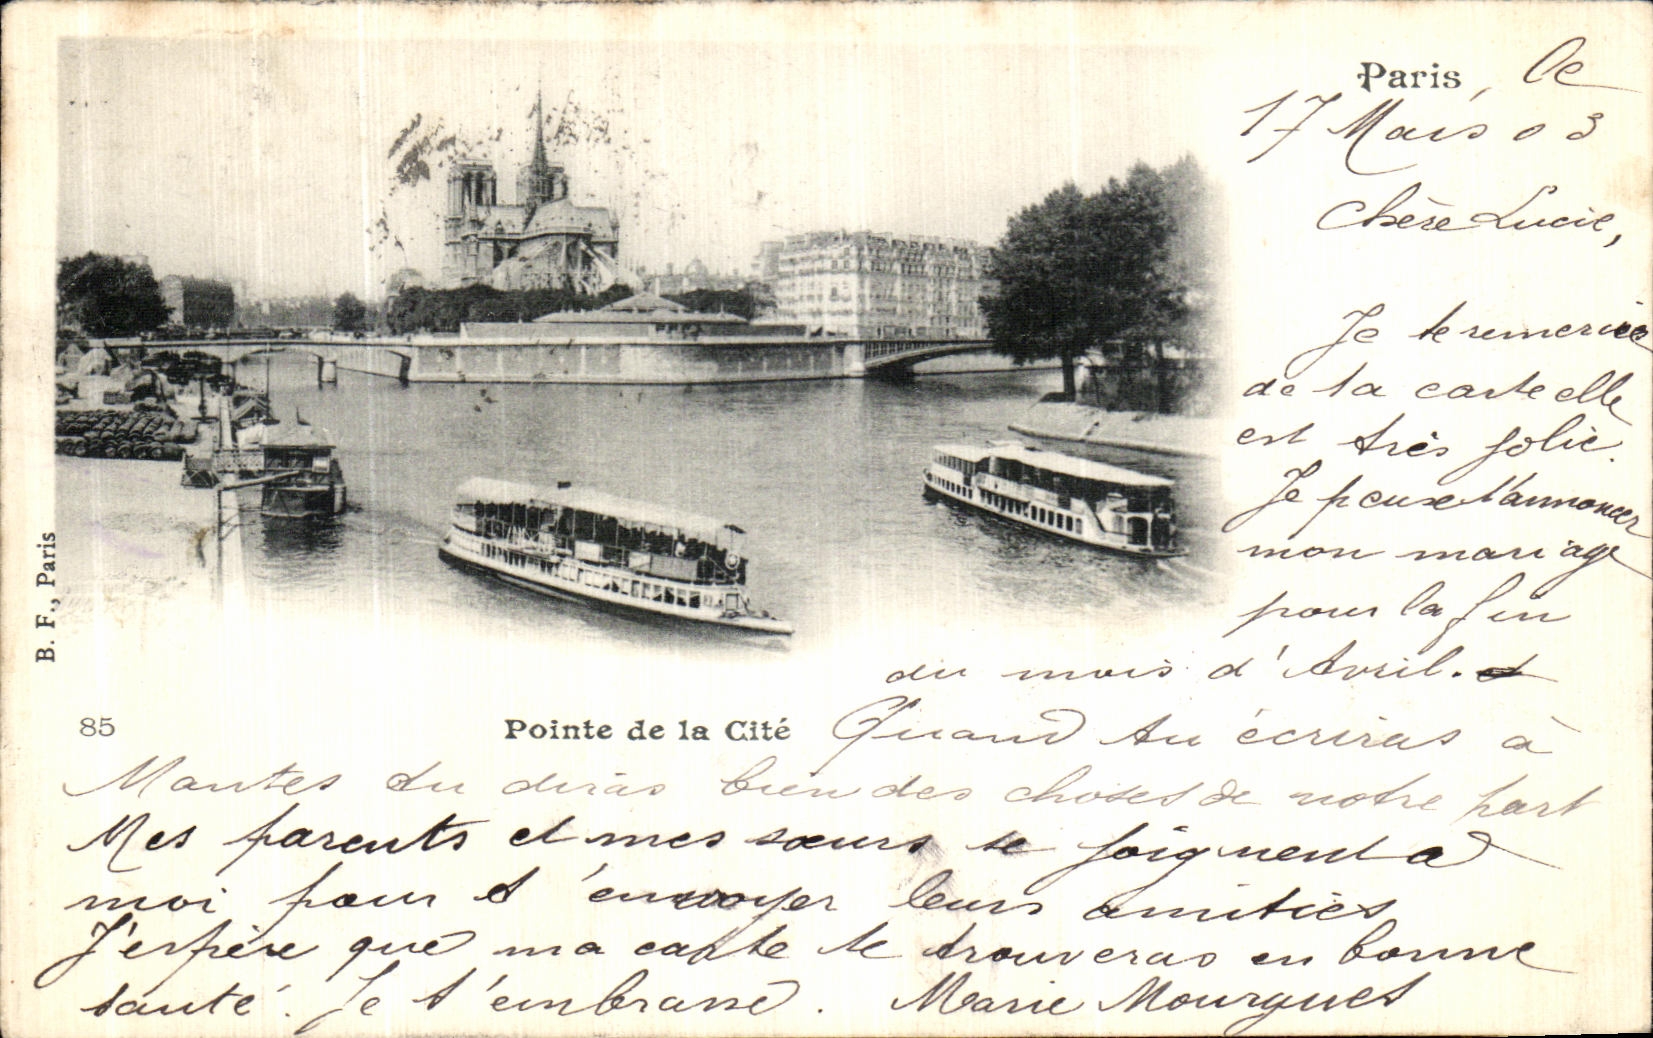 Paris, le
17 Mars 03
Chère Lucie,
Je te remercie
de ta carte elle
est très jolie.
Je peux t'annoncer
mon mariage
pour la fin
du mois d'Avril.
85
Pointe de la Cité
Quand tu écriras à
Mantes tu diras bien des choses de notre part
Mes parents et mes sœurs se joignent a
moi pour t'envoyer leurs amitiés
J'espère que ma carte te trouveras en bonne
santé. Je t'embrasse. Marie Mourgues
B. F., Paris